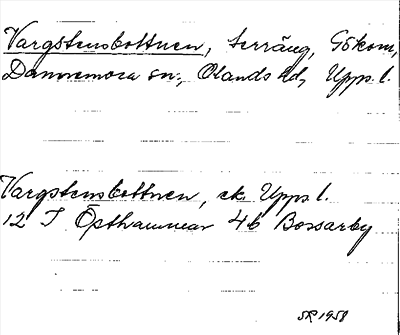 Vargstensbottnen, terräng, Gökom,
Dannemora sn., Olands hd, Upps. l.
Vargstensbottnen, ek. Upps l.
12 I Östhammar 4b Bossarby
SR 1958